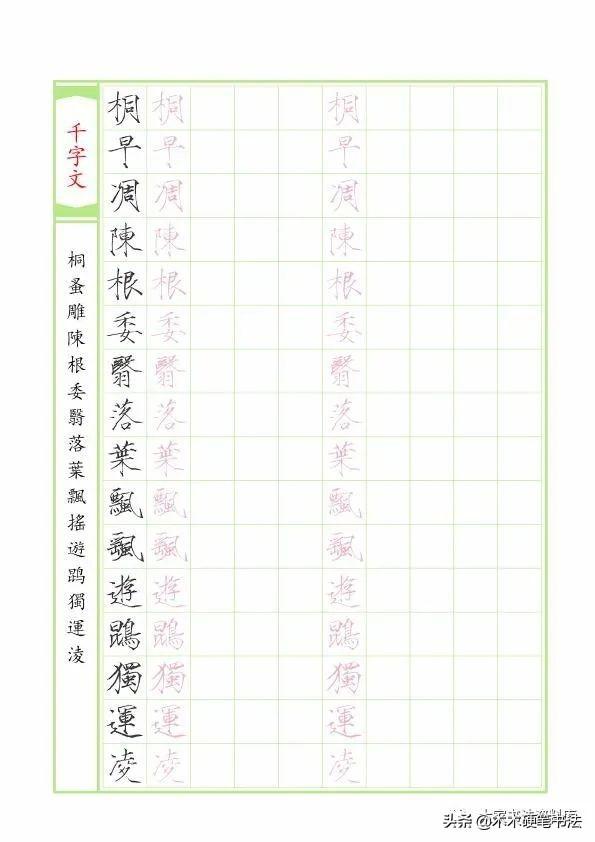 千字文
桐蚤雕陳根委翳落葉飄搖遊鹍獨運凌
桐早凋陳根委翳落葉飄颻遊鵾獨運凌
桐早凋陳根委翳落葉飄颻遊鵾獨運凌
桐早凋陳根委翳落葉飄颻遊鵾獨運凌
头条 @木木硬笔书法